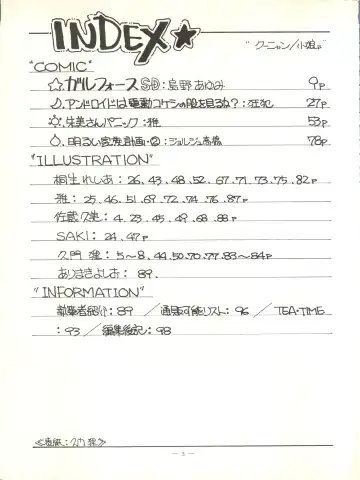 INDEX★
"クーニャン/小娘"
"COMIC"
☆ガルフォースSD:島野あゆみ 9p
アンドロイドは電動コケシの股を見るね?:狂犯 27p
朱美さんパニック:雅 53p
明るい家族計画・②:ジョルジュ高橋 78p
"ILLUSTRATION"
桐生れいあ:26.43.48.52.67.71.73.75.82p
雅:25.46.51.69.72.74.76.87p
佐藤久雄:4.23.45.49.68.88p
SAKI:24.47p
久門 狸:5~8.44.50.70.77.83~84p
ありさきよしお:89.
"INFORMATION"
執筆者紹介:89 /通販可能リスト:96 /TEA・TIME
:93 /編集後記:98
≪表紙:久門 狸≫
— 3 —